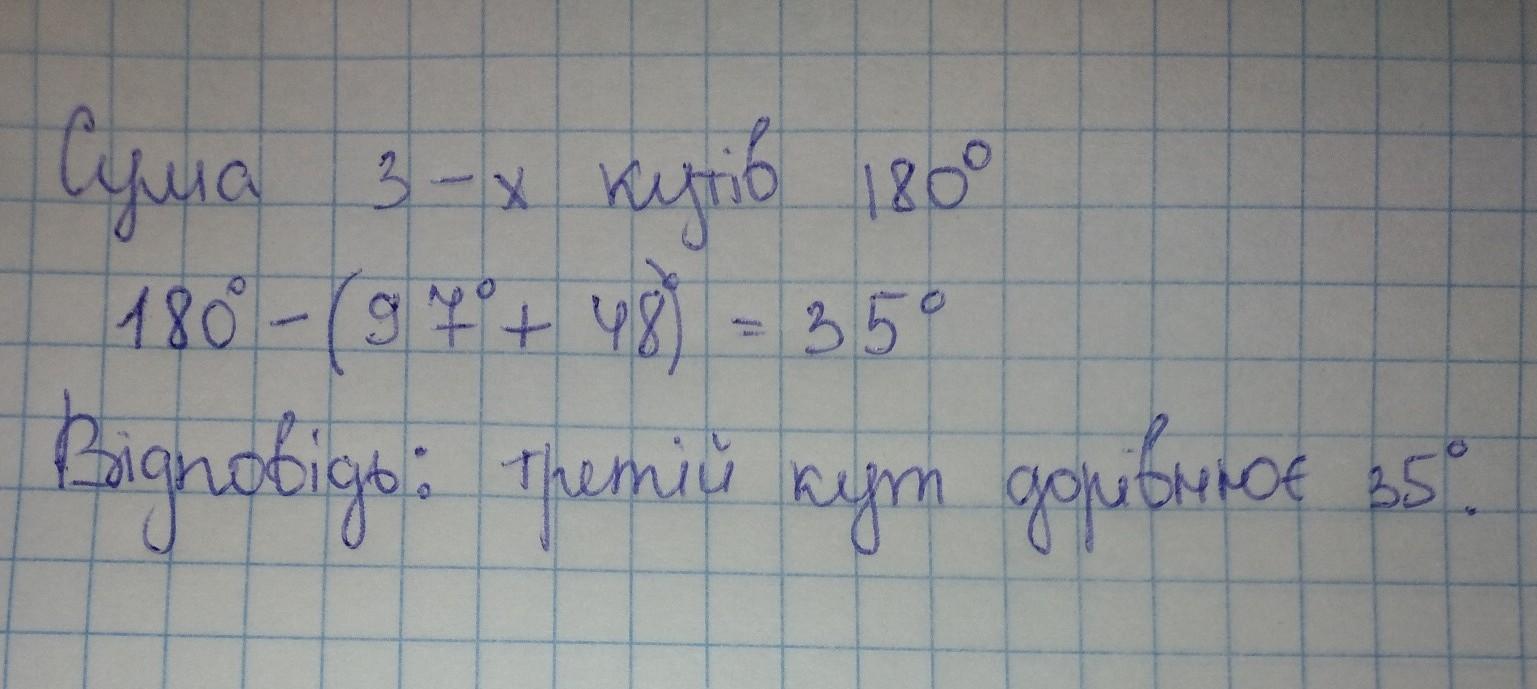 Сума 3-х кутів 180°
180° - (97° + 48°) = 35°
Відповідь: третій кут дорівнює 35°.